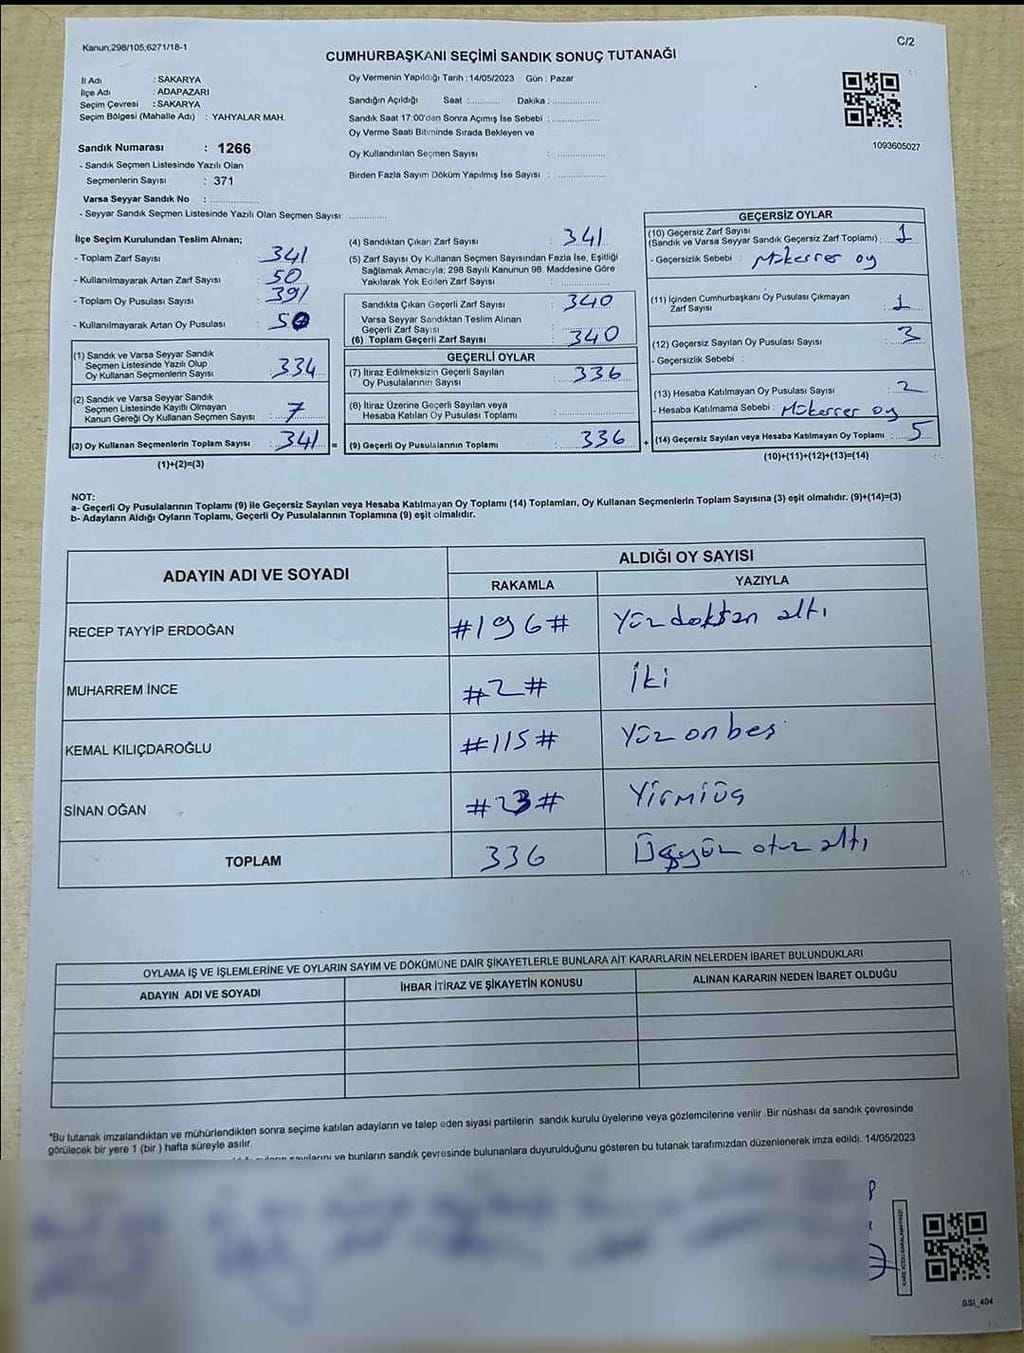 Kanun;298/105,6271/18-1
C/2
CUMHURBAŞKANI SEÇİMİ SANDIK SONUÇ TUTANAĞI
İl Adı : SAKARYA
İlçe Adı : ADAPAZARI
Seçim Çevresi : SAKARYA
Seçim Bölgesi (Mahalle Adı) : YAHYALAR MAH.
Sandık Numarası : 1266
- Sandık Seçmen Listesinde Yazılı Olan
Seçmenlerin Sayısı : 371
Varsa Seyyar Sandık No : ..............
- Seyyar Sandık Seçmen Listesinde Yazılı Olan Seçmen Sayısı: ............
Oy Vermenin Yapıldığı Tarih : 14/05/2023 Gün : Pazar
Sandığın Açıldığı Saat :.......... Dakika : ..............
Sandık Saat 17:00'den Sonra Açımış İse Sebebi : ..............
Oy Verme Saati Bitiminde Sırada Bekleyen ve
Oy Kullandırılan Seçmen Sayısı : ..............
Birden Fazla Sayım Döküm Yapılmış İse Sayısı : ..............
1093605027
İlçe Seçim Kurulundan Teslim Alınan;
- Toplam Zarf Sayısı : 341
- Kullanılmayarak Artan Zarf Sayısı : 50
- Toplam Oy Pusulası Sayısı : 391
- Kullanılmayarak Artan Oy Pusulası : 50
(1) Sandık ve Varsa Seyyar Sandık
Seçmen Listesinde Yazılı Olup
Oy Kullanan Seçmenlerin Sayısı : 334
(2) Sandık ve Varsa Seyyar Sandık
Seçmen Listesinde Kayıtlı Olmayan
Kanun Gereği Oy Kullanan Seçmen Sayısı : 7
(3) Oy Kullanan Seçmenlerin Toplam Sayısı : 341 =
(1)+(2)=(3)
(4) Sandıktan Çıkan Zarf Sayısı : 341
(5) Zarf Sayısı Oy Kullanan Seçmen Sayısından Fazla İse, Eşitliği
Sağlamak Amacıyla; 298 Sayılı Kanunun 98. Maddesine Göre
Yakılarak Yok Edilen Zarf Sayısı : ..............
Sandıkta Çıkan Geçerli Zarf Sayısı : 340
Varsa Seyyar Sandıktan Teslim Alınan
Geçerli Zarf Sayısı : ..............
(6) Toplam Geçerli Zarf Sayısı : 340
GEÇERLİ OYLAR
(7) İtiraz Edilmeksizin Geçerli Sayılan
Oy Pusulalarının Sayısı : 336
(8) İtiraz Üzerine Geçerli Sayılan veya
Hesaba Katılan Oy Pusulası Toplamı : ..............
(9) Geçerli Oy Pusulalarının Toplamı : 336 +
GEÇERSİZ OYLAR
(10) Geçersiz Zarf Sayısı
(Sandık ve Varsa Seyyar Sandık Geçersiz Zarf Toplamı) : 1
- Geçersizlik Sebebi : Mükerrer oy
(11) İçinden Cumhurbaşkanı Oy Pusulası Çıkmayan
Zarf Sayısı : 1
(12) Geçersiz Sayılan Oy Pusulası Sayısı : 3
- Geçersizlik Sebebi :
(13) Hesaba Katılmayan Oy Pusulası Sayısı : 2
- Hesaba Katılmama Sebebi : Mükerrer oy
(14) Geçersiz Sayılan veya Hesaba Katılmayan Oy Toplamı : 5
(10)+(11)+(12)+(13)=(14)
NOT:
a- Geçerli Oy Pusulalarının Toplamı (9) ile Geçersiz Sayılan veya Hesaba Katılmayan Oy Toplamı (14) Toplamları, Oy Kullanan Seçmenlerin Toplam Sayısına (3) eşit olmalıdır. (9)+(14)=(3)
b- Adayların Aldığı Oyların Toplamı, Geçerli Oy Pusulalarının Toplamına (9) eşit olmalıdır.
ADAYIN ADI VE SOYADI
ALDIĞI OY SAYISI
RAKAMLA YAZIYLA
RECEP TAYYİP ERDOĞAN #196# Yüzdoksan altı
MUHARREM İNCE #2# İki
KEMAL KILIÇDAROĞLU #115# Yüz onbeş
SİNAN OĞAN #23# Yirmiüç
TOPLAM 336 Üçyüz otuz altı
OYLAMA İŞ VE İŞLEMLERİNE VE OYLARIN SAYIM VE DÖKÜMÜNE DAİR ŞİKAYETLERLE BUNLARA AİT KARARLARIN NELERDEN İBARET BULUNDUKLARI
ADAYIN ADI VE SOYADI İHBAR İTİRAZ VE ŞİKAYETİN KONUSU ALINAN KARARIN NEDEN İBARET OLDUĞU
"Bu tutanak imzalandıktan ve mühürlendikten sonra seçime katılan adayların ve talep eden siyasi partilerin sandık kurulu üyelerine veya gözlemcilerine verilir .Bir nüshası da sandık çevresinde
görülecek bir yere 1 (bir ) hafta süreyle asılır.
ve bunların sandık çevresinde bulunanlara duyurulduğunu gösteren bu tutanak tarafımızdan düzenlenerek imza edildi. 14/05/2023
KARE KODU KARALAMAYINIZ!
GSI_404